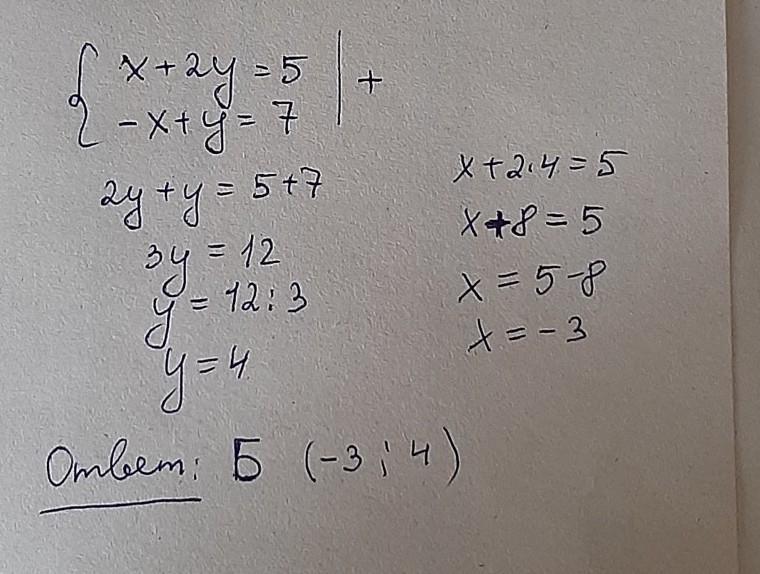 x + 2y = 5 | +
-x + y = 7
2y + y = 5 + 7
3y = 12
y = 12 : 3
y = 4
x + 2·4 = 5
x + 8 = 5
x = 5 - 8
x = -3
Ответ: Б (-3 ; 4)